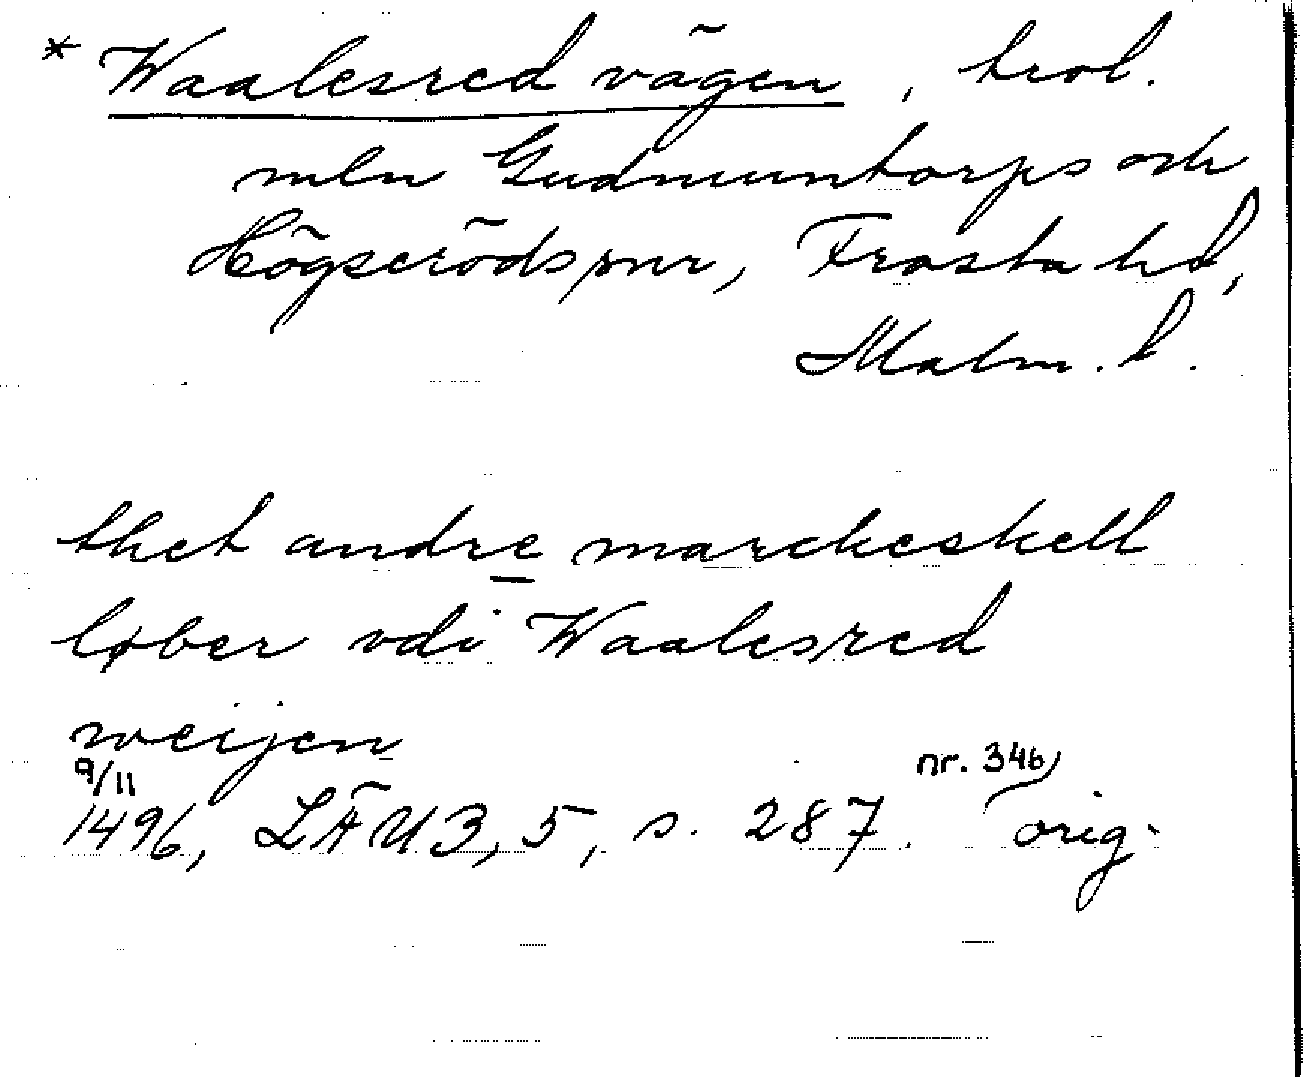 * Waalesred vägen, trol.
mln Gudmuntorps och
Högserödspnr, Frosta hd,
Malm. l.
thet andre marckeskell
løber vdi Waalesred
weijen
9/11 nr. 346,
1496, LÄU 3, 5, s. 287. orig.